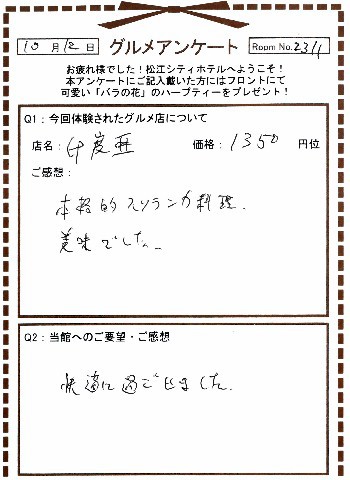 10月12日 グルメアンケート Room No. 2311
お疲れ様でした！松江シティホテルへようこそ！
本アンケートにご記入戴いた方にはフロントにて
可愛い「バラの花」のハーブティーをプレゼント！
Q1：今回体験されたグルメ店について
店名： 価格：1350 円位
ご感想：
本格的スリランカ料理.
美味でした。
Q2：当館へのご要望・ご感想
快適に過ごせました.